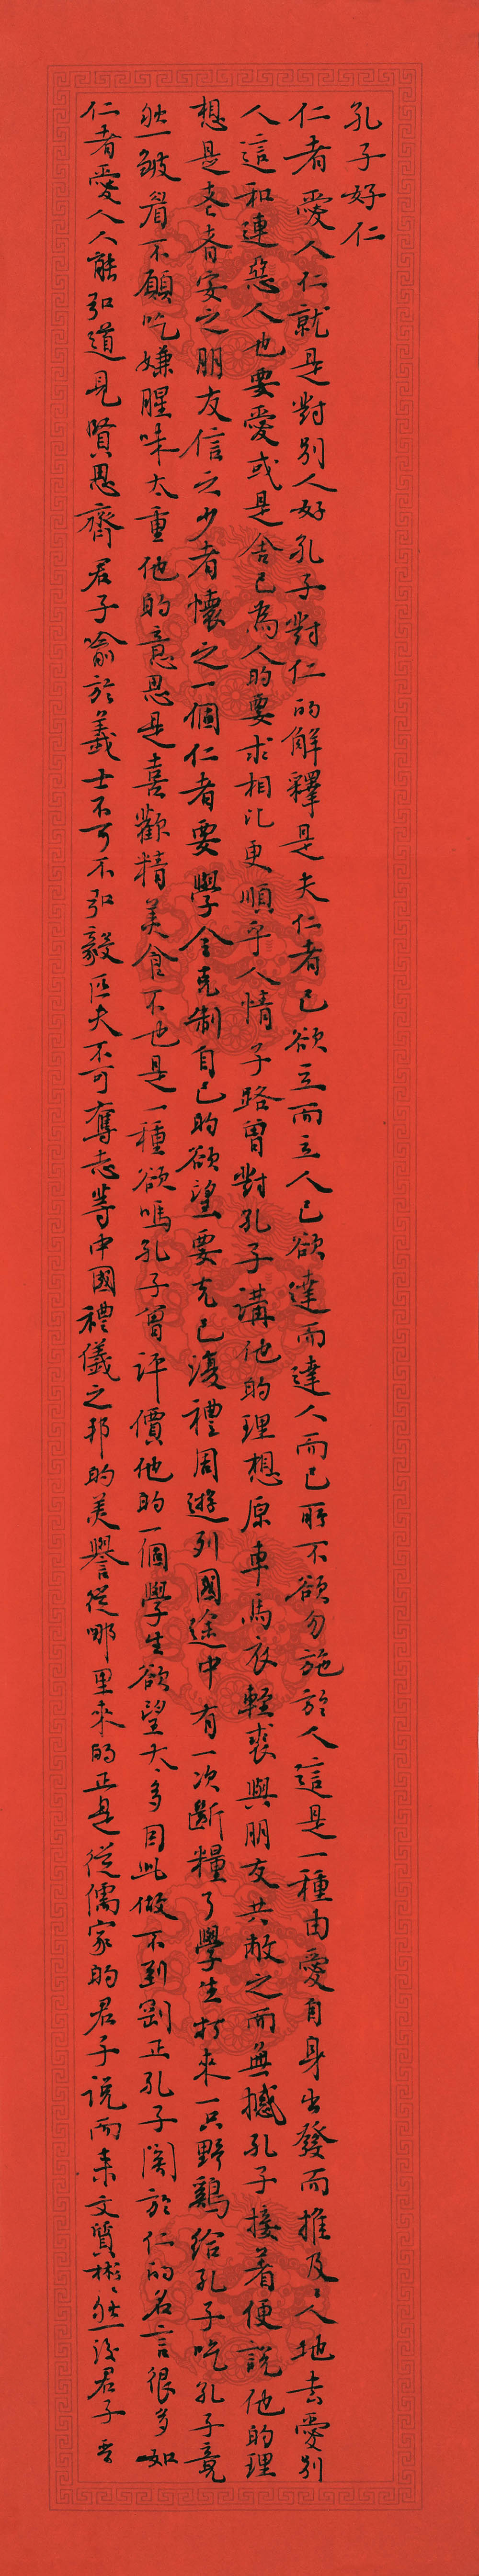 孔子好仁
仁者愛人仁就是對別人好孔子對仁的解釋是夫仁者己欲立而立人己欲達而達人而已所不欲勿施於人這是一種由愛自身出發而推及人地去愛別
人這和連惡人也要愛或是舍己為人的要求相比更順乎人情子路曾對孔子講他的理想原車馬衣輕裘與朋友共敝之而無撼孔子接著便說他的理
想是老者安之朋友信之少者懷之一個仁者要學會克制自己的欲望要克己復禮周遊列國途中有一次斷糧了學生打來一只野鷄給孔子吃孔子竟
然皺眉不願吃嫌腥味太重他的意思是喜歡精美食不也是一種欲嗎孔子曾評價他的一個學生欲望太多因此做不到剛正孔子関於仁的名言很多如
仁者愛人人能弘道見賢思齊君子喻於義士不可不弘毅匹夫不可奪志等中國禮儀之邦的美譽從哪里來的正是從儒家的君子說而來文質彬彬然後君子